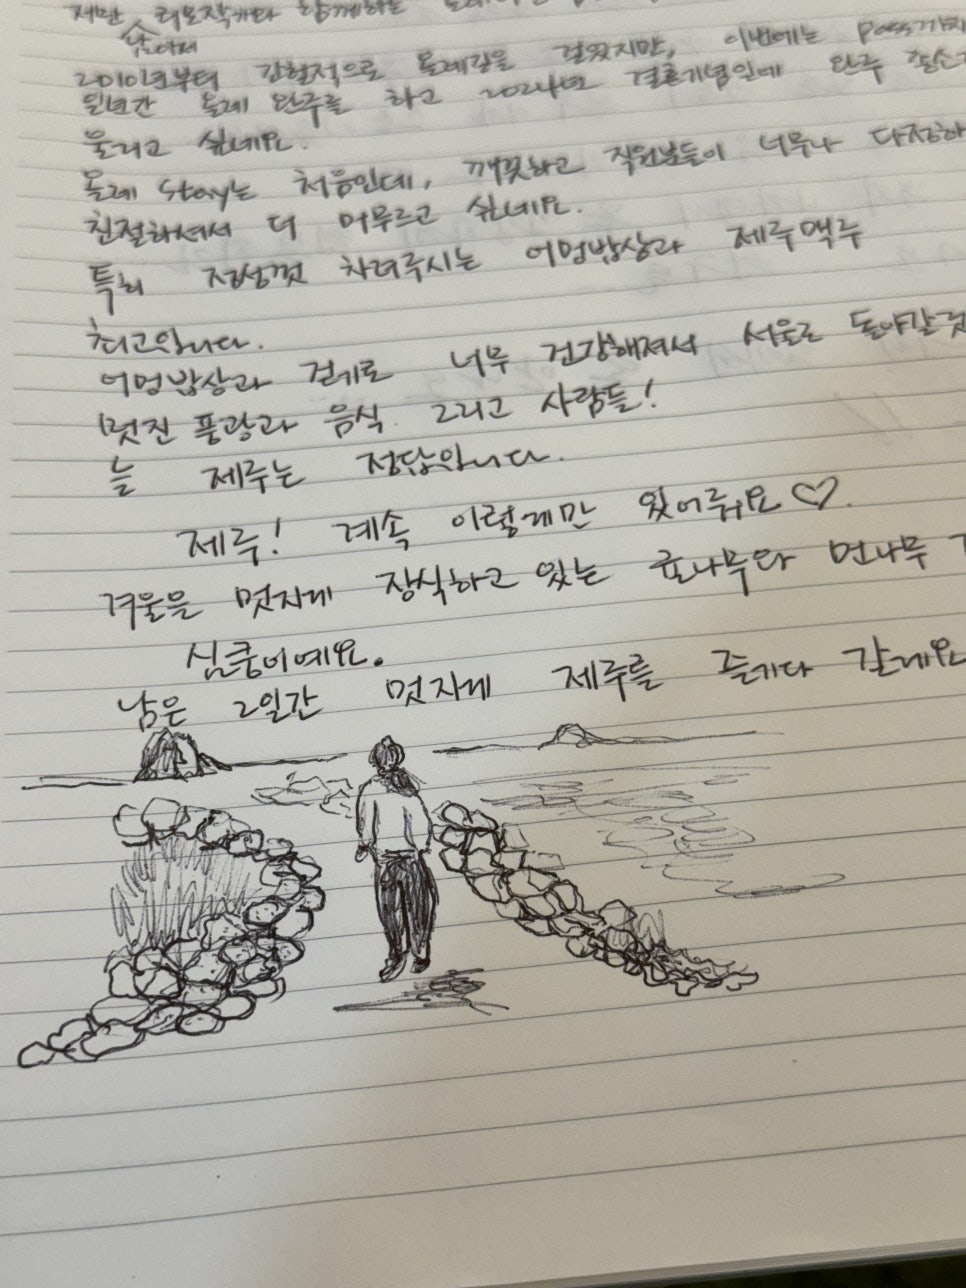 제만 리모작가와 함께하는
남아서
2010년부터 간헐적으로 올레길을 걸었지만, 이번에는 pass까지
일년간 올레 완주를 하고 2024년 결혼기념일에 완주
울리고 싶네요.
올레 Stay는 처음인데, 깨끗하고 직원분들이 너무나 다정하
친절하셔서 더 머무르고 싶네요.
특히 정성껏 차려주시는 어멍밥상과 제주맥주
최고입니다.
어멍밥상과 걷기로 너무 건강해져서 서울로 돌아갈 것
멋진 풍광과 음식 그리고 사람들!
늘 제주는 정답입니다.
제주! 계속 이렇게만 있어줘요♡.
겨울을 멋지게 장식하고 있는 귤나무와 먼나무
심쿵이예요.
남은 2일간 멋지게 제주를 즐기다 갈게요